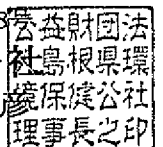 号
公益財団法
社島根県環
彦境保健公社
理事長之印